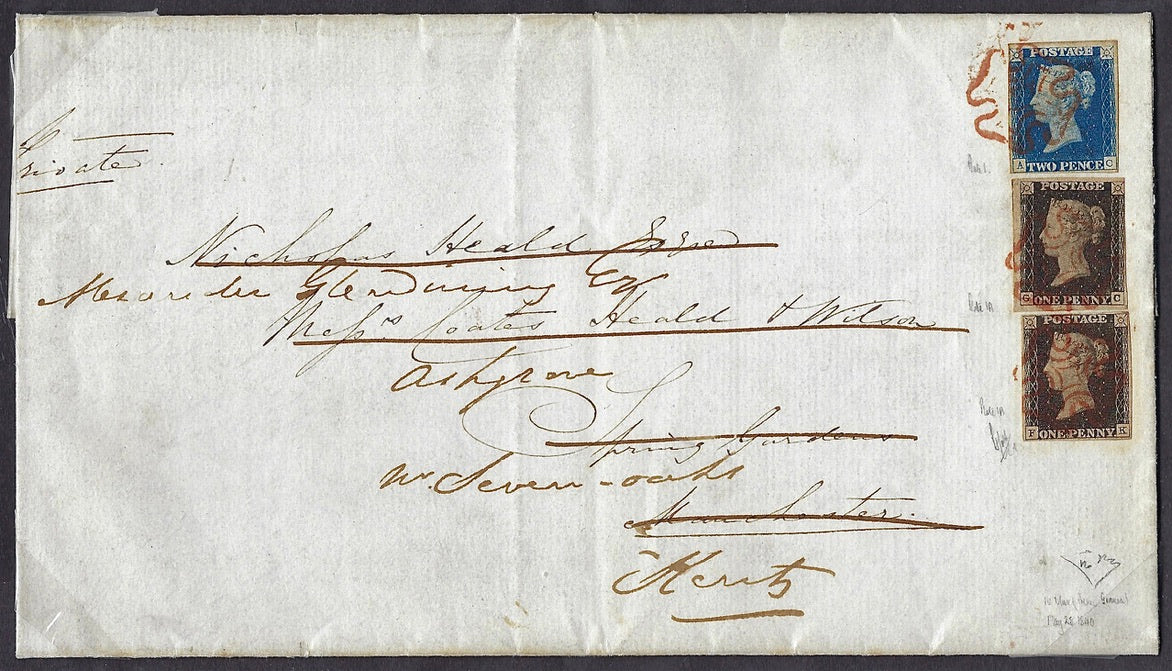 Private
Nicholas Heald Esqre
Alexander Glendinning Esq
Messrs Coates Heald & Wilson
Ashgrove
Spring Gardens
Nr. Seven-oaks
Manchester.
Kent
POSTAGE
A C
TWO PENCE
POSTAGE
G C
ONE PENNY
POSTAGE
F K
ONE PENNY
Plate 1.
May 22 1840